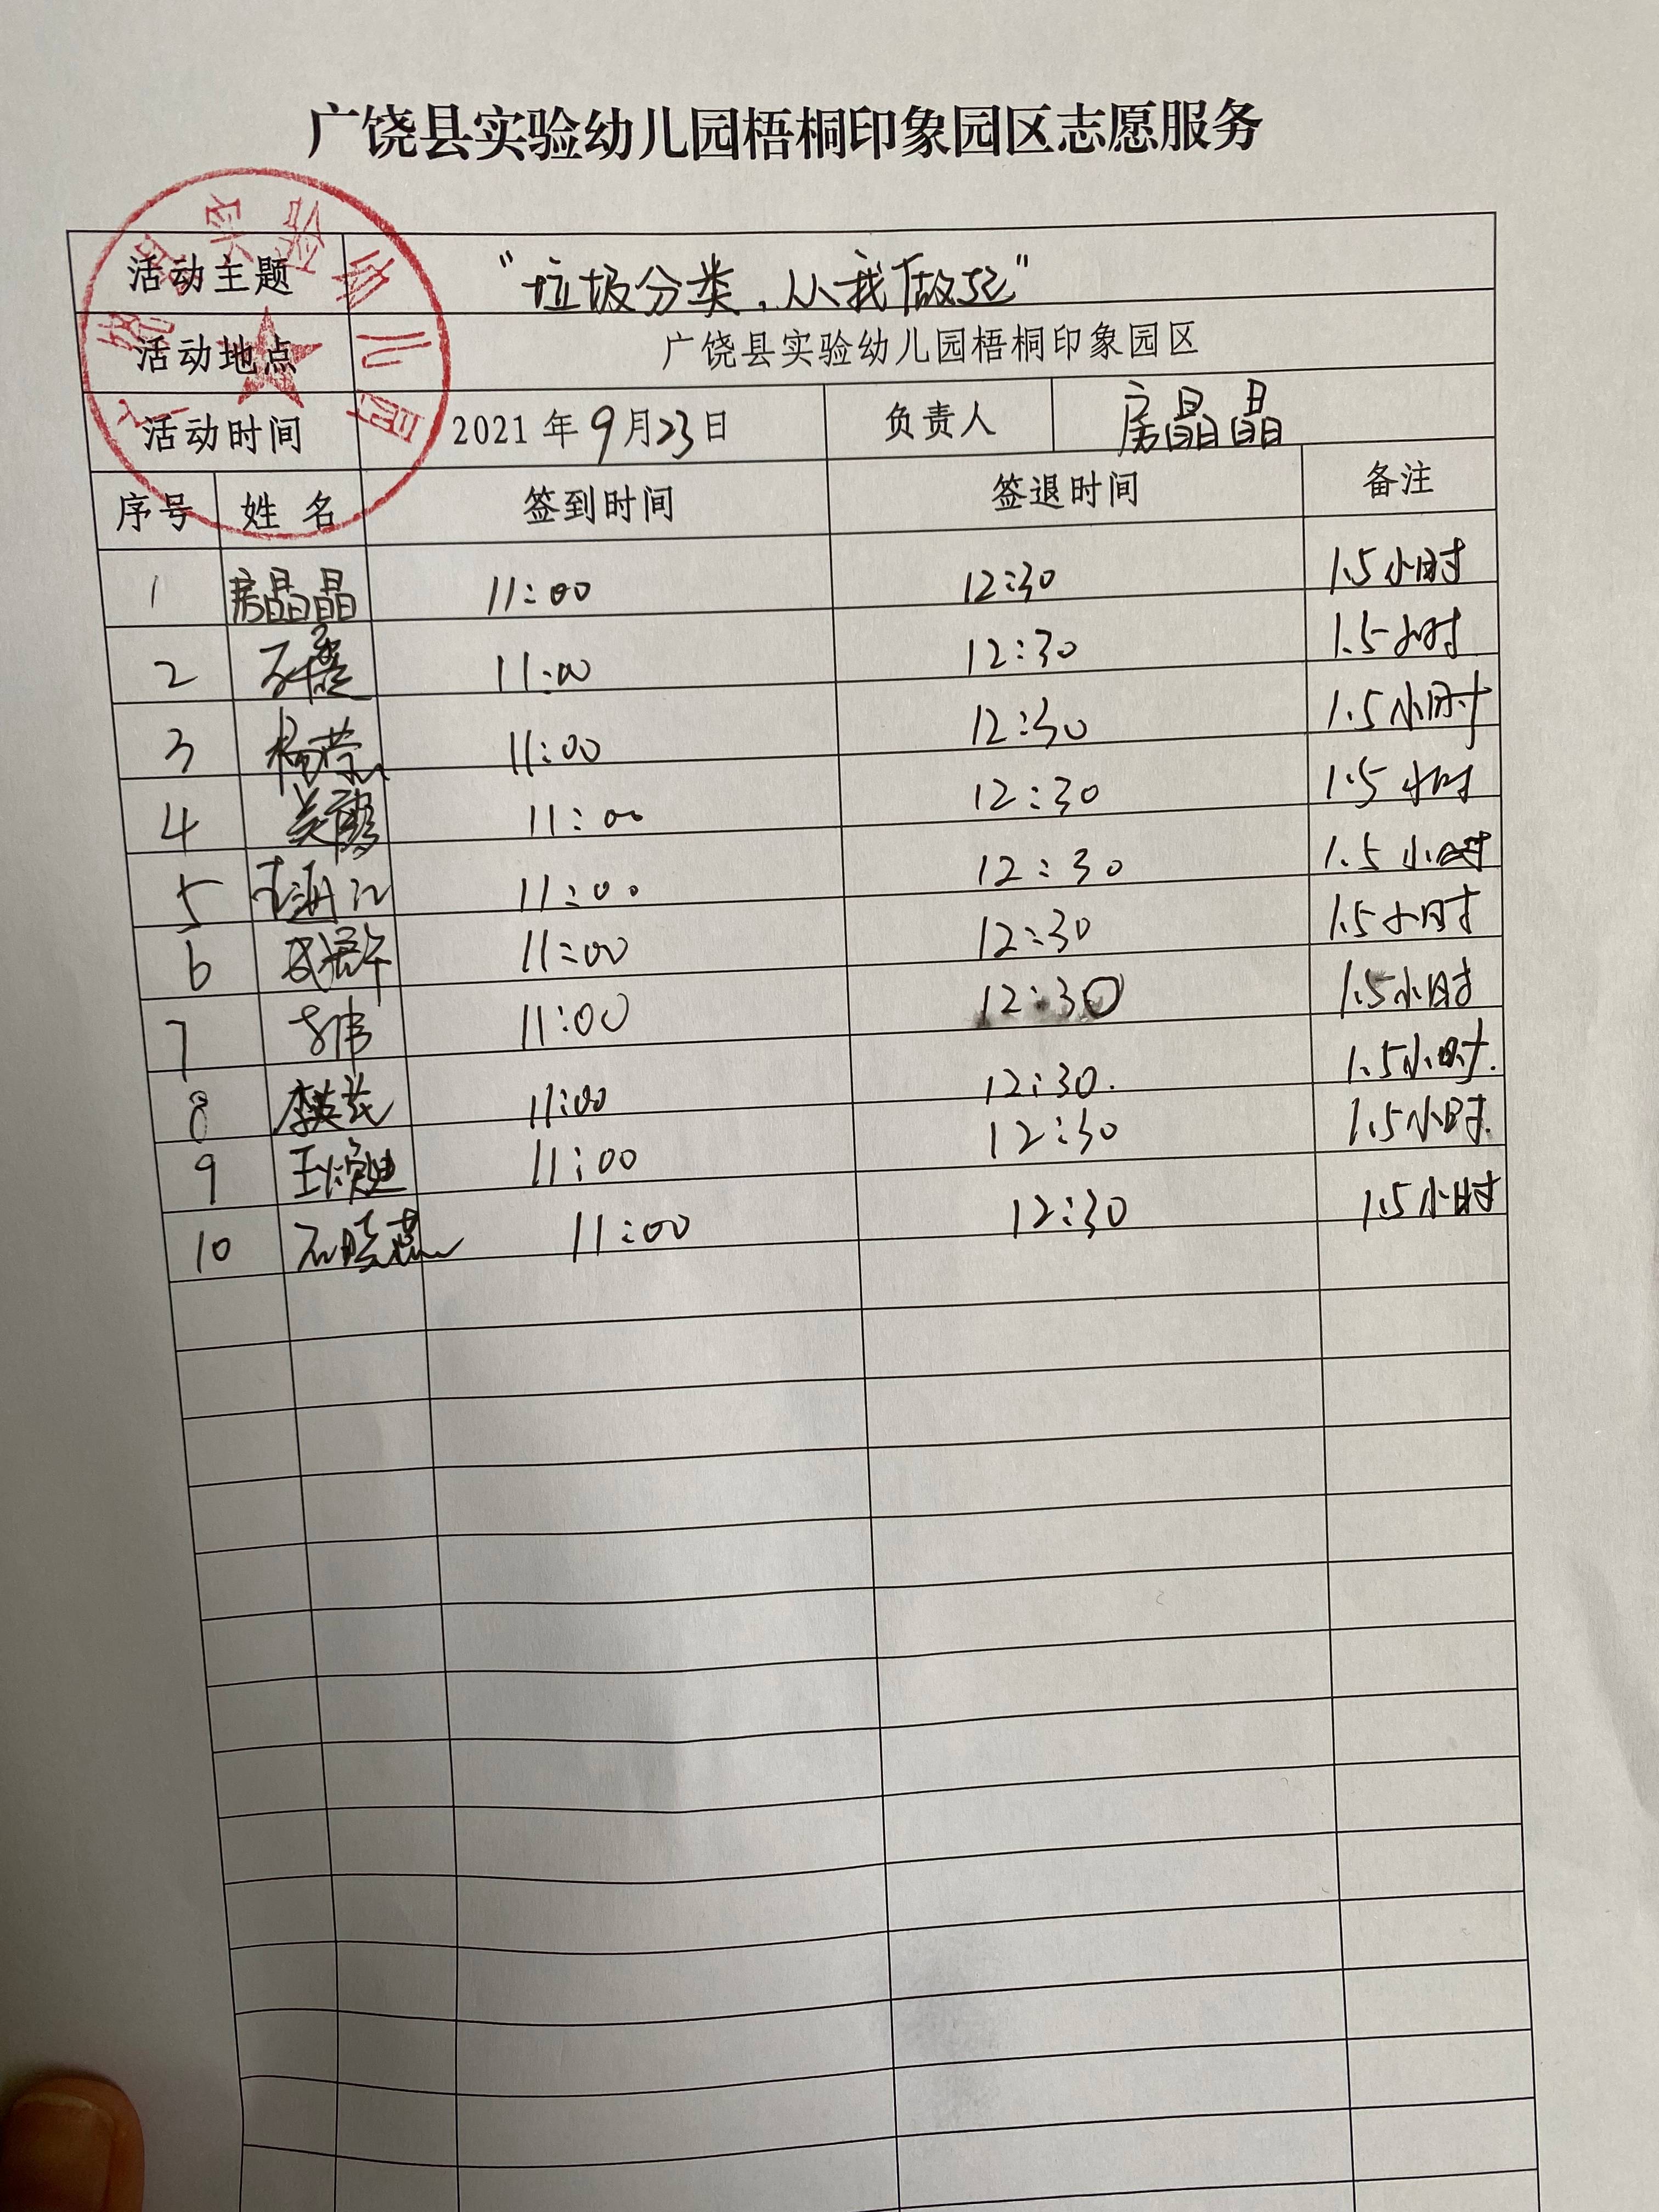 广饶县实验幼儿园梧桐印象园区志愿服务
活动主题 “垃圾分类，从我做起”
活动地点 广饶县实验幼儿园梧桐印象园区
活动时间 2021年9月23日 负责人 房晶晶
序号 姓名 签到时间 签退时间 备注
1 房晶晶 11:00 12:30 1.5小时
2 11:00 12:30 1.5小时
3 杨荣 11:00 12:30 1.5小时
4 11:00 12:30 1.5小时
5 11:00 12:30 1.5小时
6 11:00 12:30 1.5小时
7 11:00 12:30 1.5小时
8 李英 11:00 12:30. 1.5小时.
9 王 11:00 12:30 1.5小时.
10 石晓燕 11:00 12:30 1.5小时
广饶县实验幼儿园